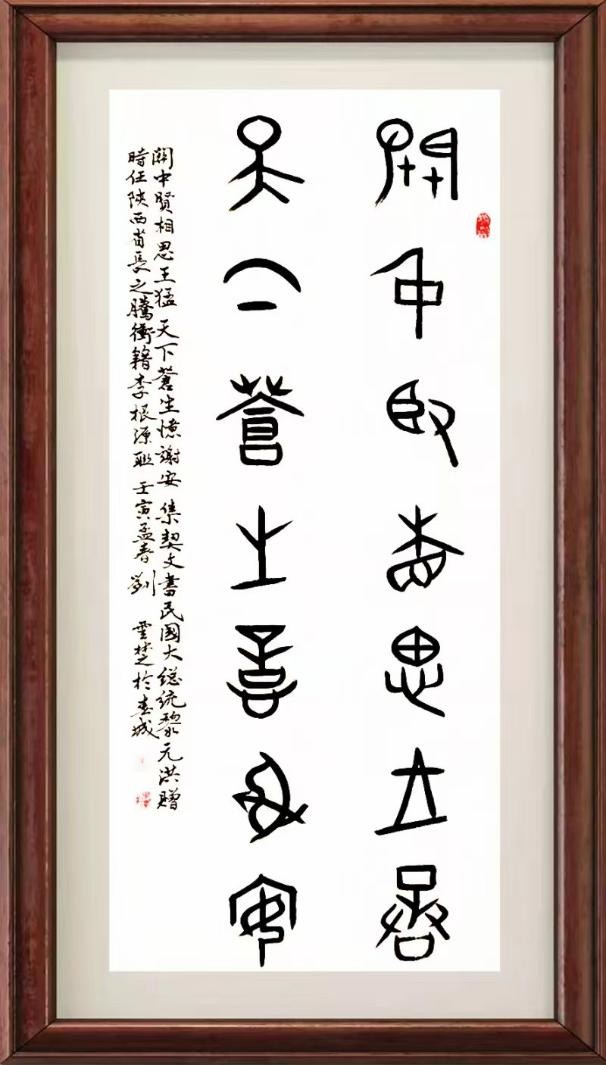 關中賢相思王猛
天下蒼生憶謝安
關中賢相思王猛 天下蒼生憶謝安 集契文書民國大總統黎元洪贈
時任陝西省長之騰衝籍李根源聯 壬寅孟春 劉 雲楚於春城